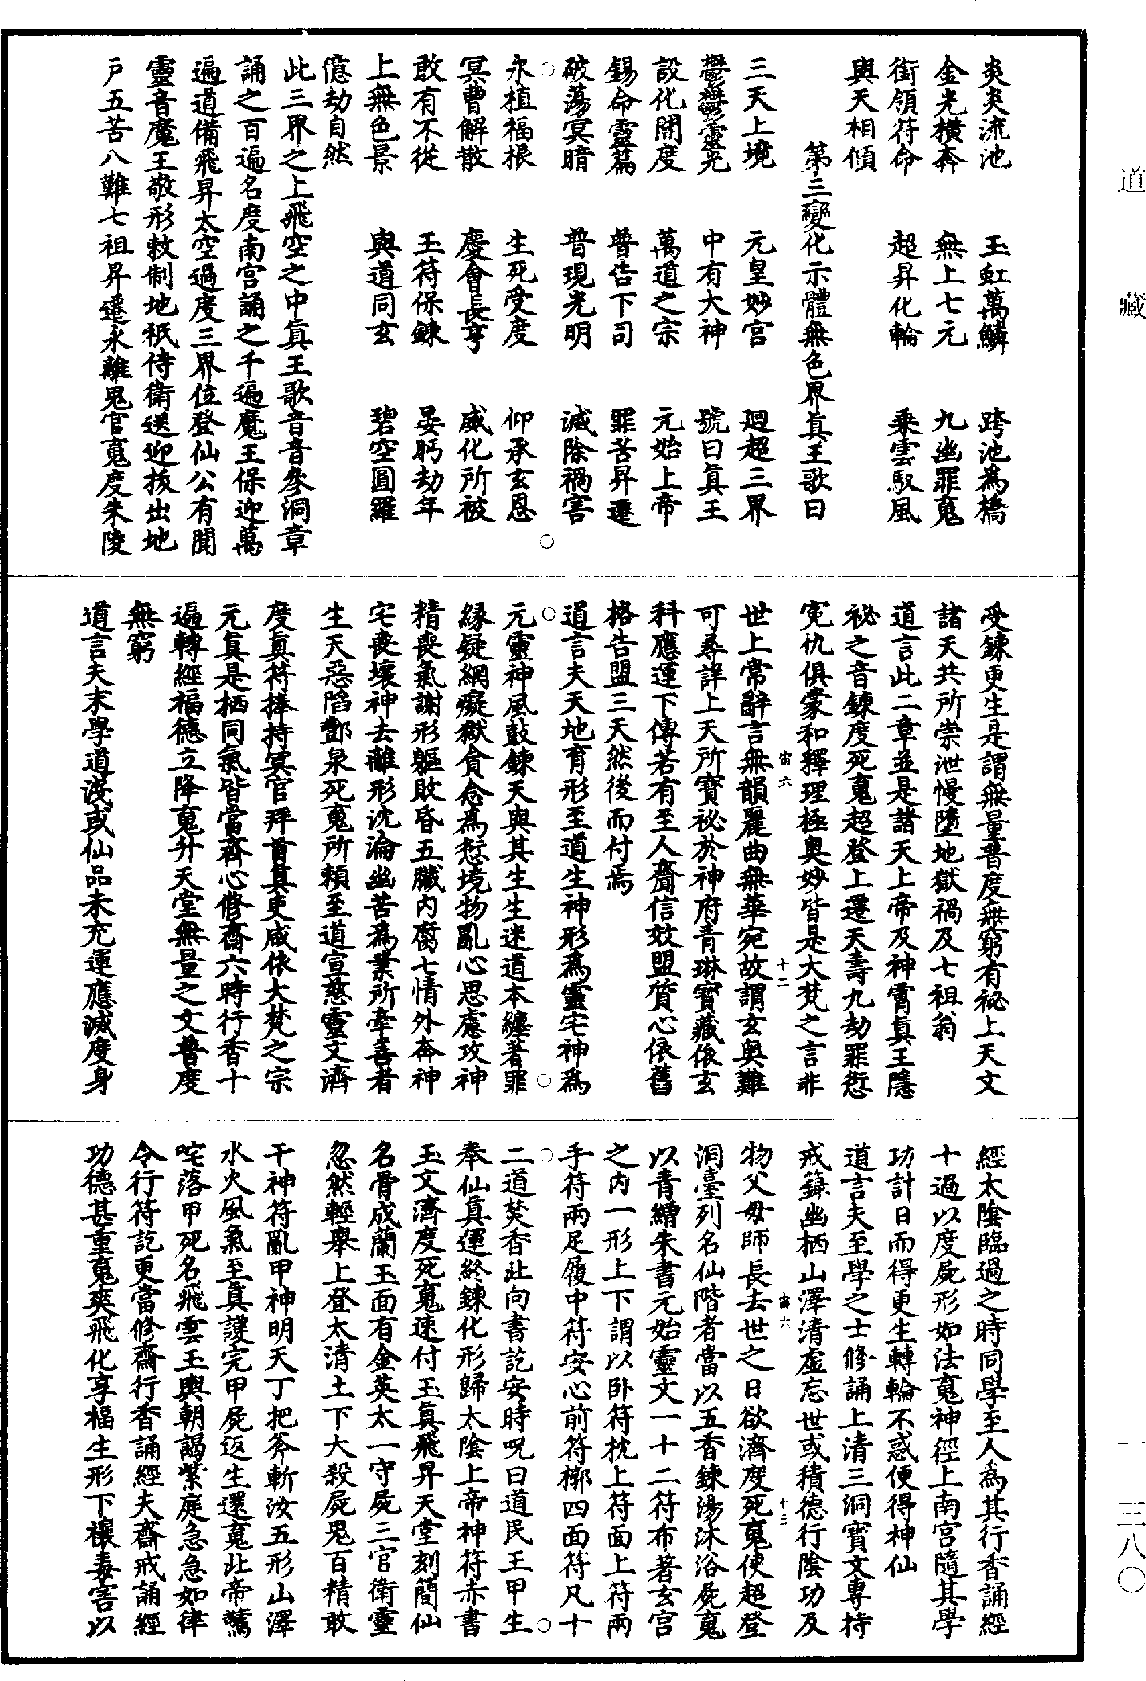 炎炎流池　玉虹萬鱗　跨池為橋
金光橫奔　無上七元　九幽罪䰟
銜領符命　超昇化輪　乘雲馭風
與天相傾
第三變化示體無色界真王歌曰
三天上境　元皇妙宮　迴超三界
鬱鬱靈光　中有大神　號曰真王
設化開度　萬道之宗　元始上帝
錫命靈篇　普告下司　罪苦昇遷
破蕩冥暗　普現光明　滅除禍害
永植福根　生死受度　仰承玄恩
冥曹解散　慶會長亨　威化所被
敢有不從　玉符保鍊　晏䀙劫年
上無色景　與道同玄　碧空圓羅
億劫自然
此三界之上飛空之中真王歌音音參洞章
誦之百遍名度南宮誦之千遍魔王保迎萬
遍道備飛昇太空過度三界位登仙公有聞
靈音魔王敬形敕制地祇侍衛送迎拔出地
戶五苦八難七祖昇遷永離鬼官䰟度朱陵
受鍊更生是謂無量普度無窮有祕上天文
諸天共所崇泄慢墮地獄禍及七祖翁
道言此二章並是諸天上帝及神霄真王隱
祕之音鍊度死䰟超登上遷天壽九劫罪愆
冤仇俱蒙和釋理極奧妙皆是大梵之言非
世上常辭言無韻麗曲無華宛故謂玄奧難
可尋詳上天所寶祕於神府青琳寶藏依玄
科應運下傳若有至人齎信效盟質心依舊
格告盟三天然後而付焉
道言夫天地育形至道生神形為靈宅神為
元靈神風鼓鍊天與其生生迷道本纏著罪
緣疑網癡獄貪念為愆境物亂心思慮攻神
精喪氣謝形軀敗昏五臟內腐七情外奔神
宅喪壞神去離形沈淪幽苦為業所牽善者
生天惡陷酆泉死䰟所賴至道宣慈靈文濟
度真符捧持冥官拜首其吏咸依大梵之宗
元真是栖同氣皆當齋心修齋六時行香十
遍轉經福德立降䰟升天堂無量之文普度
無窮
道言夫末學道淺或仙品未充運應滅度身
經太陰臨過之時同學至人為其行香誦經
十過以度屍形如法䰟神徑上南宮隨其學
功計日而得更生轉輪不惑便得神仙
道言夫至學之士修誦上清三洞寶文專持
戒籙幽栖山澤清虛忘世或積德行陰功及
物父母師長去世之日欲濟度死䰟使超登
洞臺列名仙階者當以五香鍊湯沐浴屍䰟
以青繒朱書元始靈文一十二符布著玄宮
之內一形上下謂以卧符枕上符面上符兩
手符兩足履中符安心前符槨四面符凡十
二道焚香北向書訖安時呪曰道民王甲生
奉仙真運終鍊化形歸太陰上帝神符赤書
玉文濟度死䰟速付玉真飛昇天堂刻簡仙
名骨成蘭玉面有金英太一守屍三官衛靈
忽然輕舉上登太清土下大殺屍鬼百精敢
干神符亂甲神明天丁把斧斬汝五形山澤
水火風氣至真護完甲屍返生還䰟北帝驚
咤落甲死名飛雲玉輿朝謁紫庭急急如律
令行符訖更當修齋行香誦經夫齋戒誦經
功德甚重䰟爽飛化享福生形下禳毒害以
宙六
十二
宙六
十三
道藏
一—三八〇